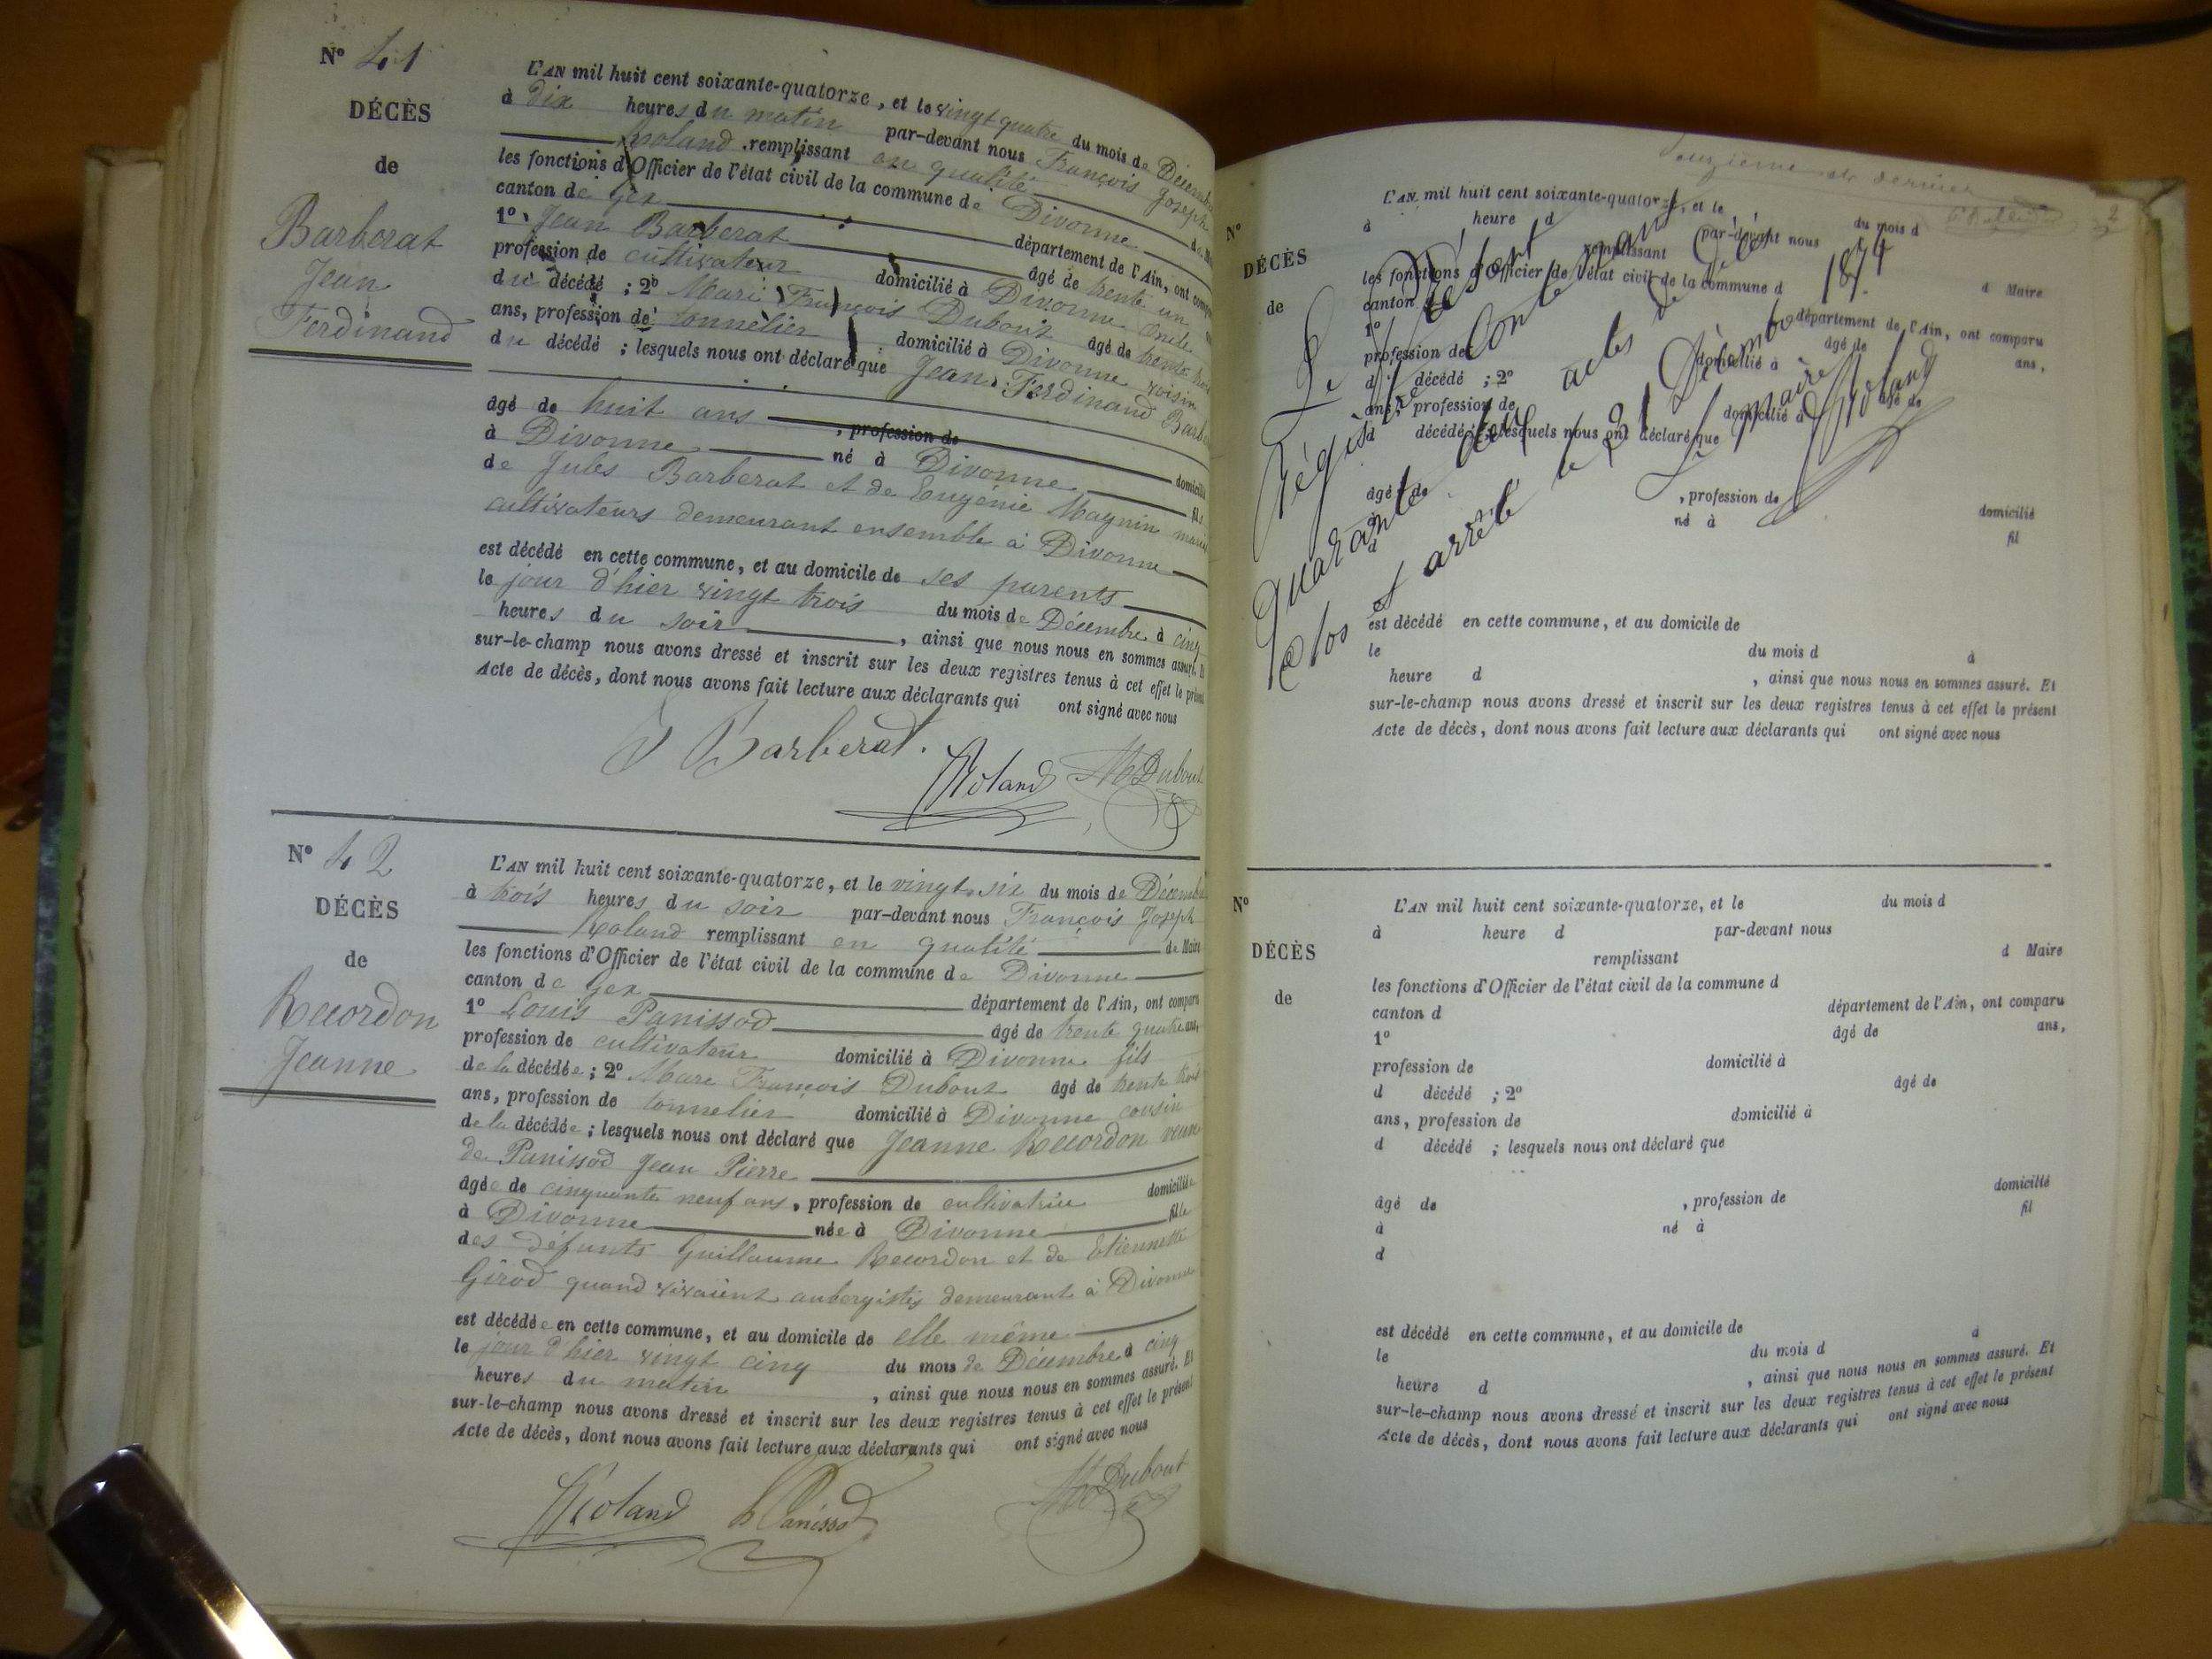 N° 41
DÉCÈS
de
Barberat
Jean
Ferdinand
L'AN mil huit cent soixante-quatorze, et le vingt quatre du mois de Décembre
à dix heures du matin par-devant nous François Joseph
Roland remplissant en qualité de Maire
les fonctions d'Officier de l'état civil de la commune de Divonne
canton de Gex département de l'Ain, ont comparu
1° Jean Barberat âgé de trente un
profession de cultivateur domicilié à Divonne oncle
du décédé ; 2° Marc François Dubout âgé de trente trois
ans, profession de tonnelier domicilié à Divonne voisin
du décédé ; lesquels nous ont déclaré que Jean Ferdinand Barberat
âgé de huit ans , profession de domicilié
à Divonne né à Divonne fils
de Jules Barberat et de Eugénie Magnin mariés
cultivateurs demeurant ensemble à Divonne
est décédé en cette commune, et au domicile de ses parents
le jour d'hier vingt trois du mois de Décembre à cinq
heures du soir , ainsi que nous nous en sommes assuré. Et
sur-le-champ nous avons dressé et inscrit sur les deux registres tenus à cet effet le présent
Acte de décès, dont nous avons fait lecture aux déclarants qui ont signé avec nous
J Barberat.
Roland M Dubout
N° 42
DÉCÈS
de
Recordon
Jeanne
L'AN mil huit cent soixante-quatorze, et le vingt six du mois de Décembre
à trois heures du soir par-devant nous François Joseph
Roland remplissant en qualité de Maire
les fonctions d'Officier de l'état civil de la commune de Divonne
canton de Gex département de l'Ain, ont comparu
1° Louis Panissod âgé de trente quatre ans,
profession de cultivateur domicilié à Divonne fils
de la décédée ; 2° Marc François Dubout âgé de trente trois
ans, profession de tonnelier domicilié à Divonne cousin
de la décédée ; lesquels nous ont déclaré que Jeanne Recordon veuve
de Panissod Jean Pierre
âgée de cinquante neuf ans, profession de cultivatrice domiciliée
à Divonne née à Divonne fille
des défunts Guillaume Recordon et de Etiennette
Girod quand vivaient aubergistes demeurant à Divonne
est décédée en cette commune, et au domicile de elle même
le jour d'hier vingt cinq du mois de Décembre à cinq
heures du matin , ainsi que nous nous en sommes assuré. Et
sur-le-champ nous avons dressé et inscrit sur les deux registres tenus à cet effet le présent
Acte de décès, dont nous avons fait lecture aux déclarants qui ont signé avec nous
Roland L Panissod M Dubout
Douzième et dernier
N°
DÉCÈS
de
L'AN mil huit cent soixante-quatorze, et le du mois d
à heure d par-devant nous
remplissant d Maire
les fonctions d'Officier de l'état civil de la commune d
canton d département de l'Ain, ont comparu
1° âgé de ans,
profession de domicilié à
d décédé ; 2° âgé de
ans, profession de domicilié à
d décédé ; lesquels nous ont déclaré que
âgé de , profession de domicilié
à né à fil
d
Le présent
Registre contenant
quarante deux actes de décès
clos et arrêté le 31 Décembre 1874
Le maire
Roland
est décédé en cette commune, et au domicile de
le du mois d à
heure d , ainsi que nous nous en sommes assuré. Et
sur-le-champ nous avons dressé et inscrit sur les deux registres tenus à cet effet le présent
Acte de décès, dont nous avons fait lecture aux déclarants qui ont signé avec nous
N°
DÉCÈS
de
L'AN mil huit cent soixante-quatorze, et le du mois d
à heure d par-devant nous
remplissant d Maire
les fonctions d'Officier de l'état civil de la commune d
canton d département de l'Ain, ont comparu
1° âgé de ans,
profession de domicilié à
d décédé ; 2° âgé de
ans, profession de domicilié à
d décédé ; lesquels nous ont déclaré que
âgé de , profession de domicilié
à né à fil
d
est décédé en cette commune, et au domicile de
le du mois d à
heure d , ainsi que nous nous en sommes assuré. Et
sur-le-champ nous avons dressé et inscrit sur les deux registres tenus à cet effet le présent
Acte de décès, dont nous avons fait lecture aux déclarants qui ont signé avec nous